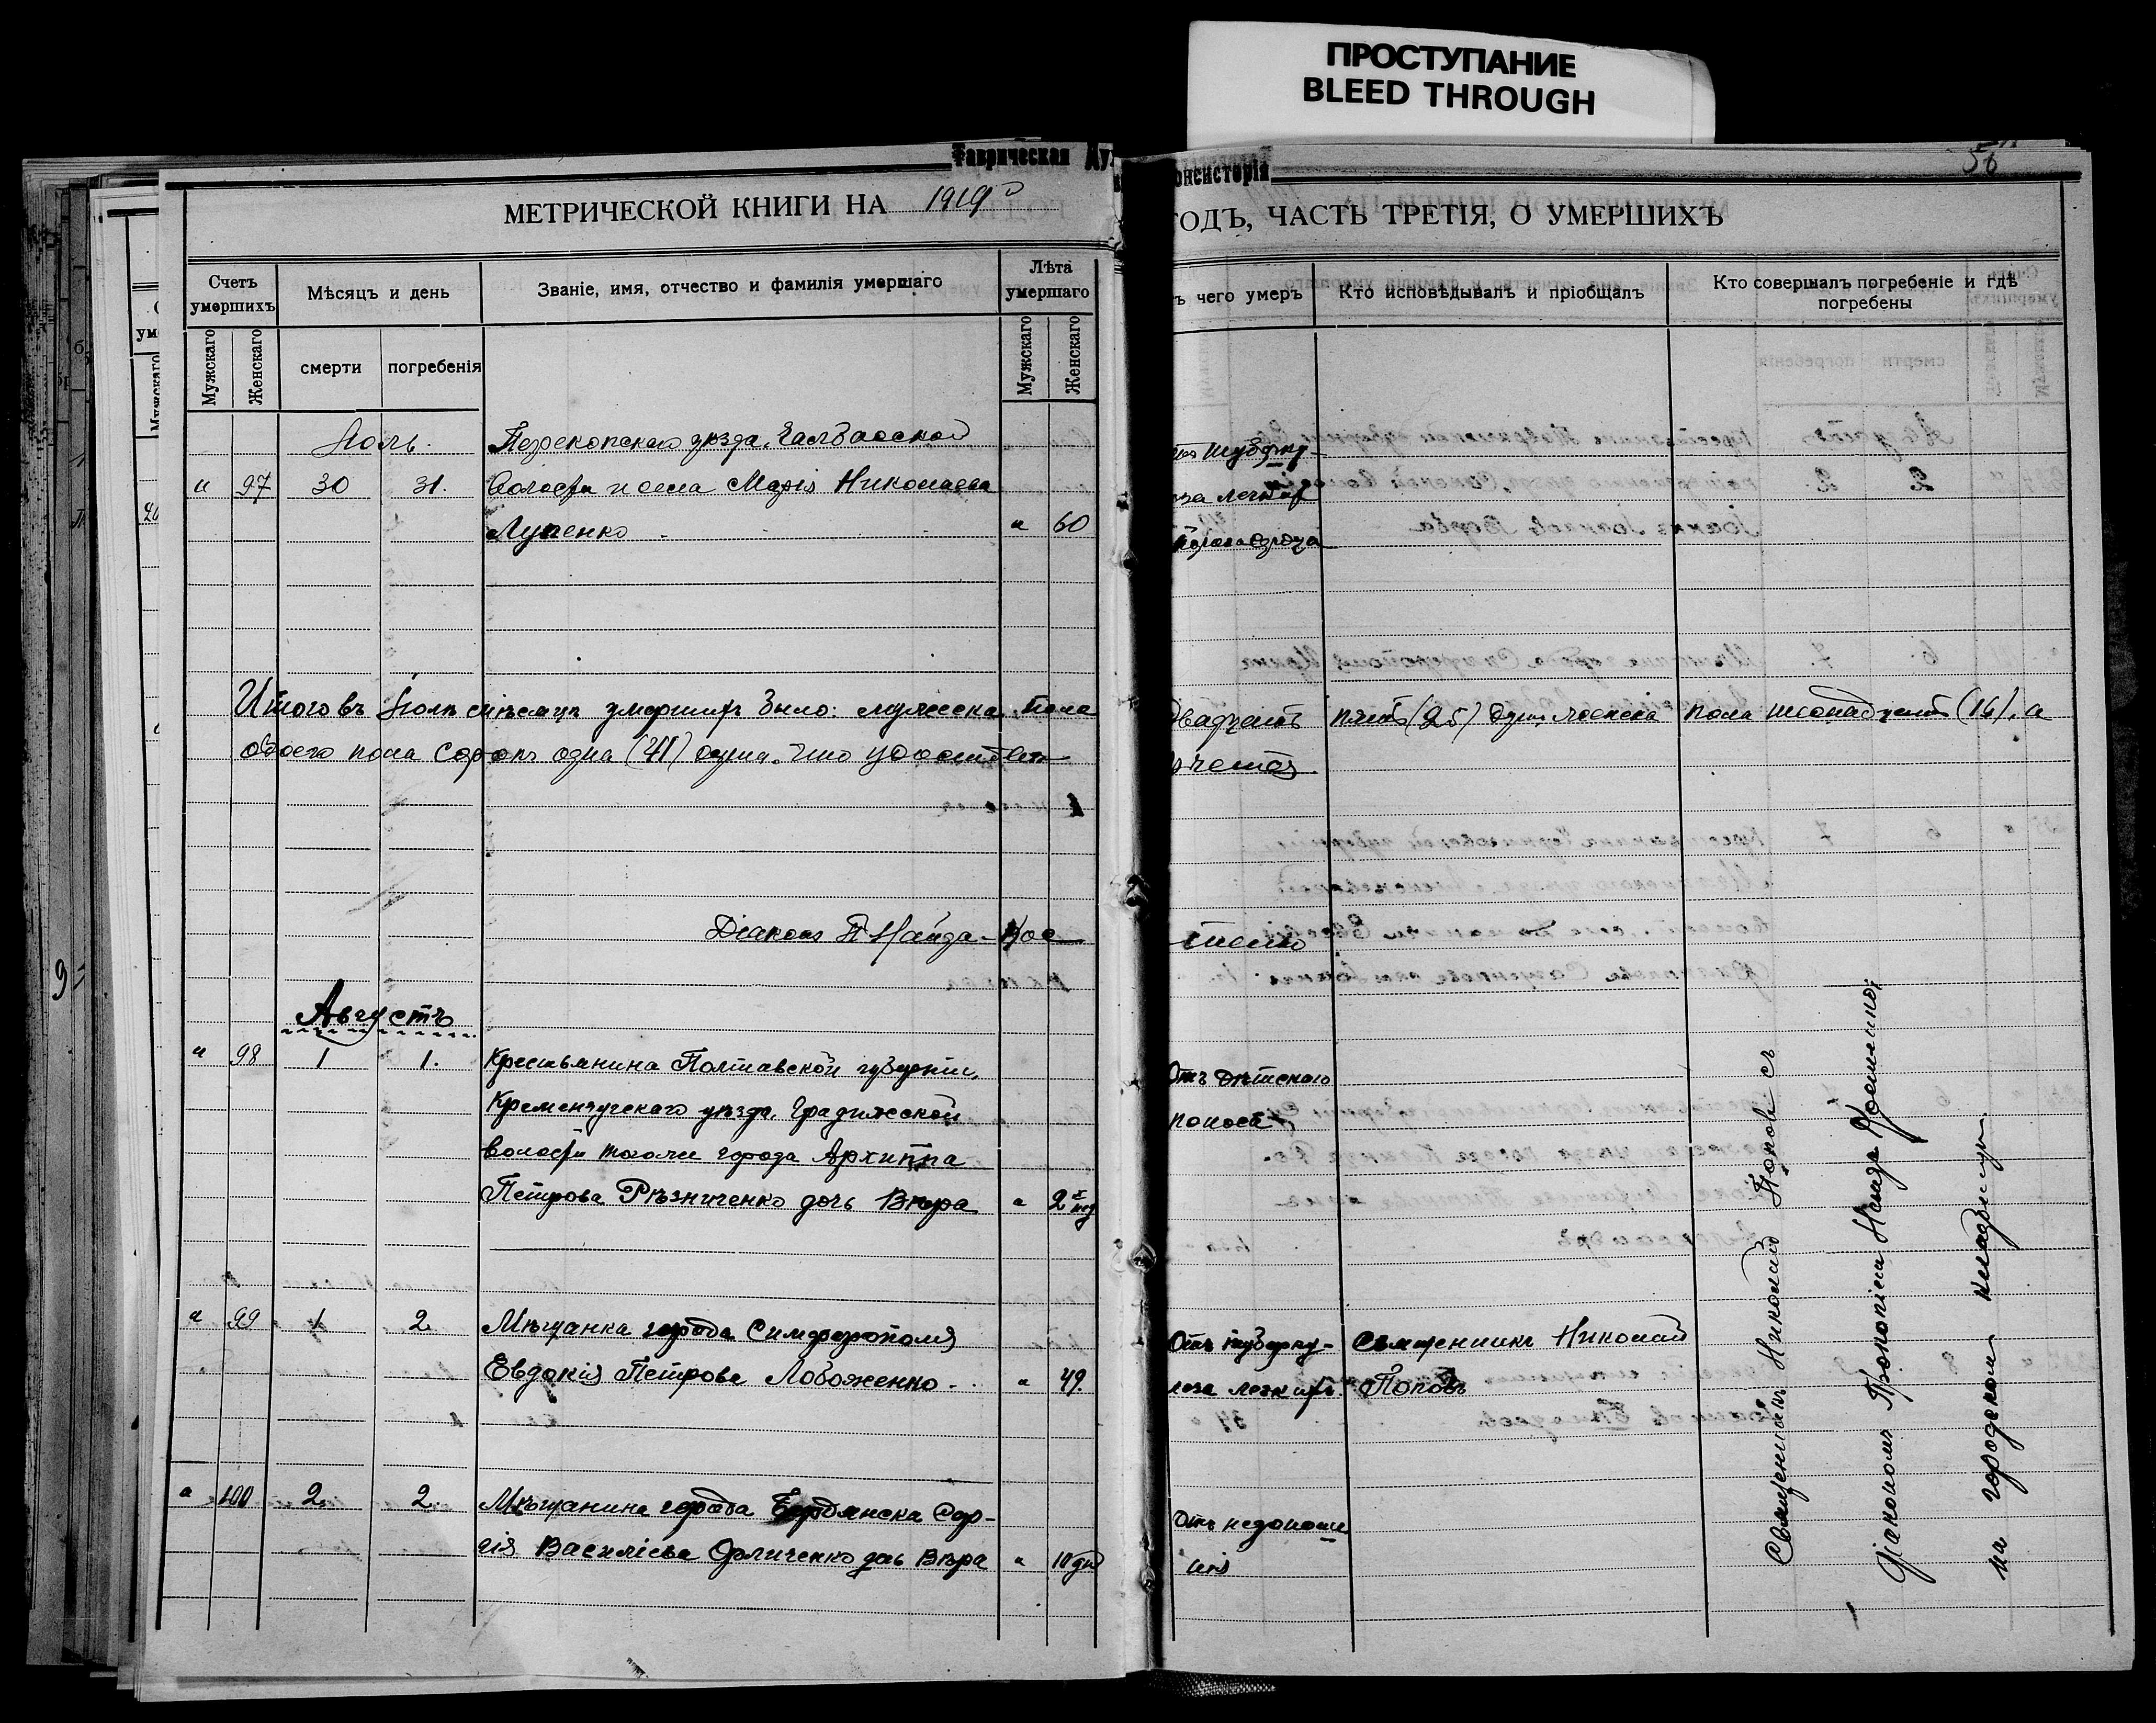 ПРОСТУПАНИЕ
BLEED THROUGH
Таврическая Ду
онсисторія
56
МЕТРИЧЕСКОЙ КНИГИ НА 1919
ГОДЪ, ЧАСТЬ ТРЕТІЯ, О УМЕРШИХЪ
Счетъ умершихъ
Мѣсяцъ и день
Званіе, имя, отчество и фамилія умершаго
Лѣта умершаго
ъ чего умеръ
Кто исповѣдывалъ и пріобщалъ
Кто совершалъ погребеніе и гдѣ погребены
Мужскаго
Женскаго
смерти
погребенія
Мужскаго
Женскаго
Іюль.
Перекопскаго уѣзда,
" 97 30 31. Волости и села Марія Николаева
Лупенко " 60
Итого въ Іюлѣ мѣсяцѣ умершихъ было: мужска пола двадцать пять (25) душ, женска пола шестнадцать (16), а
обоего пола сорокъ одна (41) душа. Что удостовѣ
Діаконъ П. Найда-
Августъ
" 98 1 1. Крестьянина Полтавской губерніи, Отъ дѣтскаго
Кременчугскаго уѣзда, Градижской поноса
волости того же города Архиппа
Петрова Рѣзниченко дочь Вѣра " 2 нед
" 99 1 2 Мѣщанка города Симферополя Отъ туберку- Священникъ Николай
Евдокія Петрова Лобоженко. " 49. леза легкихъ Поповъ
" 100 2 2 Мѣщанина города Бердянска Сер- Отъ недоноше
гія Васильева Орличенко дочь Вѣра " 10 дн нія
Священникъ Николай Поповъ съ
діакономъ Прокопіемъ Найда-Костенко;
на городскомъ кладбищѣ.